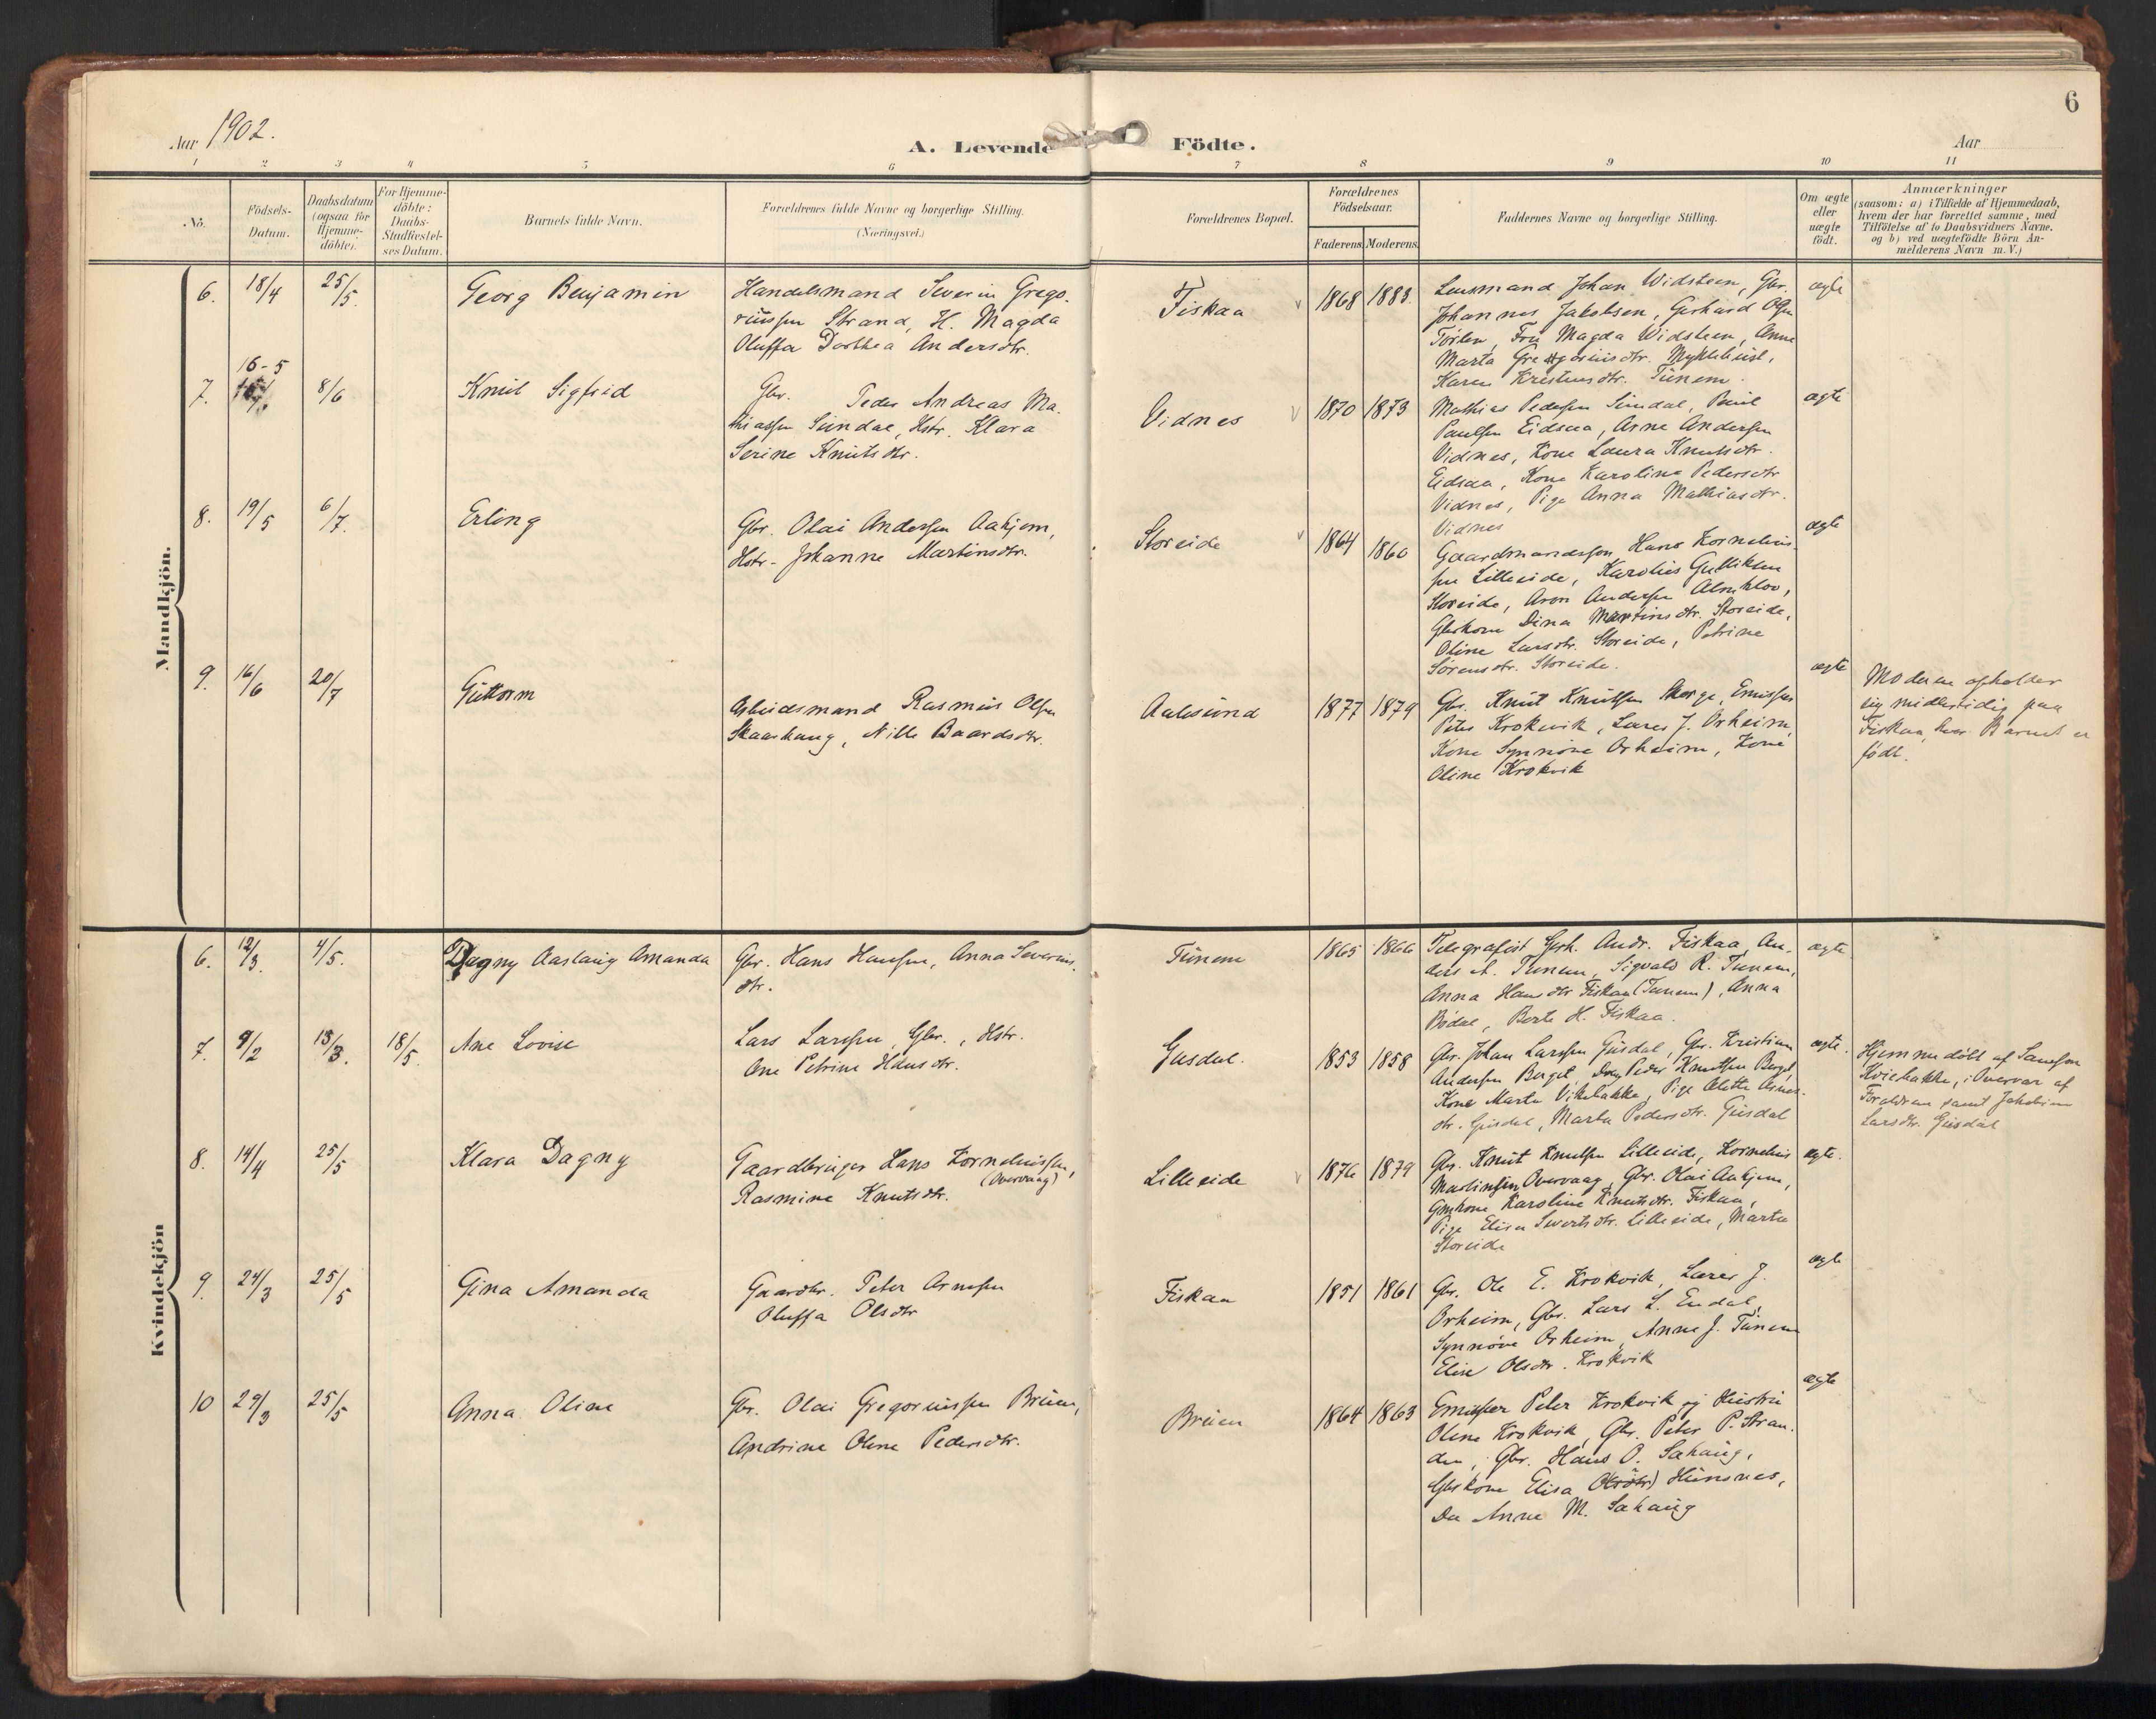 6
Aar 1902.
A. Levende Födte.
Aar
1 2 3 4 5 6 7 8 9 10 11
No.
Födsels-Datum.
Daabsdatum (ogsaa for Hjemme-döbte).
For Hjemme-döbte: Daabs-Stadfæstel-ses Datum.
Barnets fulde Navn.
Forældrenes fulde Navne og borgerlige Stilling.
(Næringsvei.)
Forældrenes Bopæl.
Forældrenes Födselsaar.
Faderens. Moderens.
Faddernes Navne og borgerlige Stilling.
Om ægte eller uægte födt.
Anmærkninger
(saasom: a) i Tilfælde af Hjemmedaab,
hvem der har forrettet samme, med
Tilföielse af to Daabsvidners Navne,
og b) ved uægtefödte Börn An-
melderens Navn m. V.)
Mandkjön.
6. 18/4 25/5. Georg Benjamin
Handelsmand Severin Grego-
riussen Strand, H. Magda
Oluffa Dorthea Andersdtr.
Fiskaa
1868 1883.
Lensmand Johan Widsteen, Gbr.
Johannes Jakobsen, Gerhard Olsen
Fru Magda Widsteen, Anne
Marta Gregoriusdtr. Myklebust,
Karen Kristensdtr. Tunem.
ægte
16-5
7. 8/6 Knut Sigfrid
Gbr. Peder Andreas Ma-
thiassen Sundal, Hstr. Klara
Serine Knutsdtr.
Vidnes
1870 1873
Mathias Pedersen Sundal, Paul
Paulsen Eidsaa, Arne Andersen
Vidnes, Kone Laura Knutsdtr.
Eidsaa, Kone Karoline Pedersdtr
Vidnes, Pige Anna Mathiasdtr.
Vidnes
ægte
8. 19/5 6/7. Erling
Gbr. Olai Andersen Aahjem,
Hstr. Johanne Martinsdtr.
Storeide
1864 1860
Gaardmandssøn Hans Kornelius-
sen Lilleeide, Karolius Gulliksen
Storeide, Aron Andersen Almklov,
Gbrkone Dina Martinsdtr. Storeide,
Oline Larsdtr. Storeide, Petrine
Sørensdtr. Storeide.
ægte
9. 16/6 20/7 Guttorm
Arbeidsmand Rasmus Olsen
Skaarhaug, Nille Baardsdtr.
Aalesund
1877 1879
Gbr. Knut Knutsen Skorge, Emissær
Peter Krokvik, Lærer J. Orheim,
Kone Synnøve Orheim, Kone
Oline Krokvik
ægte
Moderen opholder
sig midlertidig paa
Fiskaa, hvor Barnet er
født.
Kvindekjön
6. 12/3. 4/5. Dagny Aaslaug Amanda
Gbr. Hans Hansen, Anna Severins-
dtr.
Tunem
1865 1866
Telegrafist Gerh. Andr. Fiskaa, An-
ders A. Tunem, Sigvald R. Tunem,
Anna Hansdtr Fiskaa (Tunem), Anna
Bødal, Berte H. Fiskaa.
ægte.
7. 9/2 13/3. 18/5. Ane Lovise
Lars Larssen, Gbr., Hstr.
Ane Petrine Hansdtr.
Gusdal.
1853 1858
Gbr. Johan Larssen Gusdal, Gbr. Kristian
Andersen Berget, Peder Knutsen Berget,
Kone Marte Vikebakke, Pige Olette Arnes-
dtr. Gusdal, Marta Pedersdtr. Gusdal
ægte.
Hjemmedöbt af Samson
Kviebakke, i Overvær af
Forældrene samt Jakobine
Larsdtr. Gusdal
8. 14/4 25/5 Klara Dagny
Gaardbruger Hans Korneliussen,
(Overvaag)
Rasmine Knutsdtr.
Lilleeide
1876 1879
Gbr. Knut Knutsen Lilleeide, Kornelius
Martinsen Overvaag, Gbr. Olai Aahjem,
Gmkone Karoline Knutsdtr. Fiskaa,
Pige Elisa Sivertsdtr. Lilleeide, Marta
Storeide
ægte.
9. 24/3 25/5 Gina Amanda
Gaardbr. Peter Arnesen
Oluffa Olsdtr
Fiskaa
1851 1861
Gbr. Ole E. Krokvik, Lærer J.
Orheim, Gbr. Lars L. Endal,
Synnøve Orheim, Anne J. Tunem
Elise Olsdtr. Krokvik
ægte
10 29/3 25/5 Anna Oline
Gbr. Olai Gregoriussen Bruen,
Andrine Oline Pedersdtr.
Bruen
1864 1863
Emissær Peter Krokvik og Hustru
Oline Krokvik, Gbr. Peter P. Stran-
den, Gbr. Hans O. Sahaug,
Gbrkone Elisa Olsdtr) Hunsnes,
Do Anne M. Sahaug
ægte